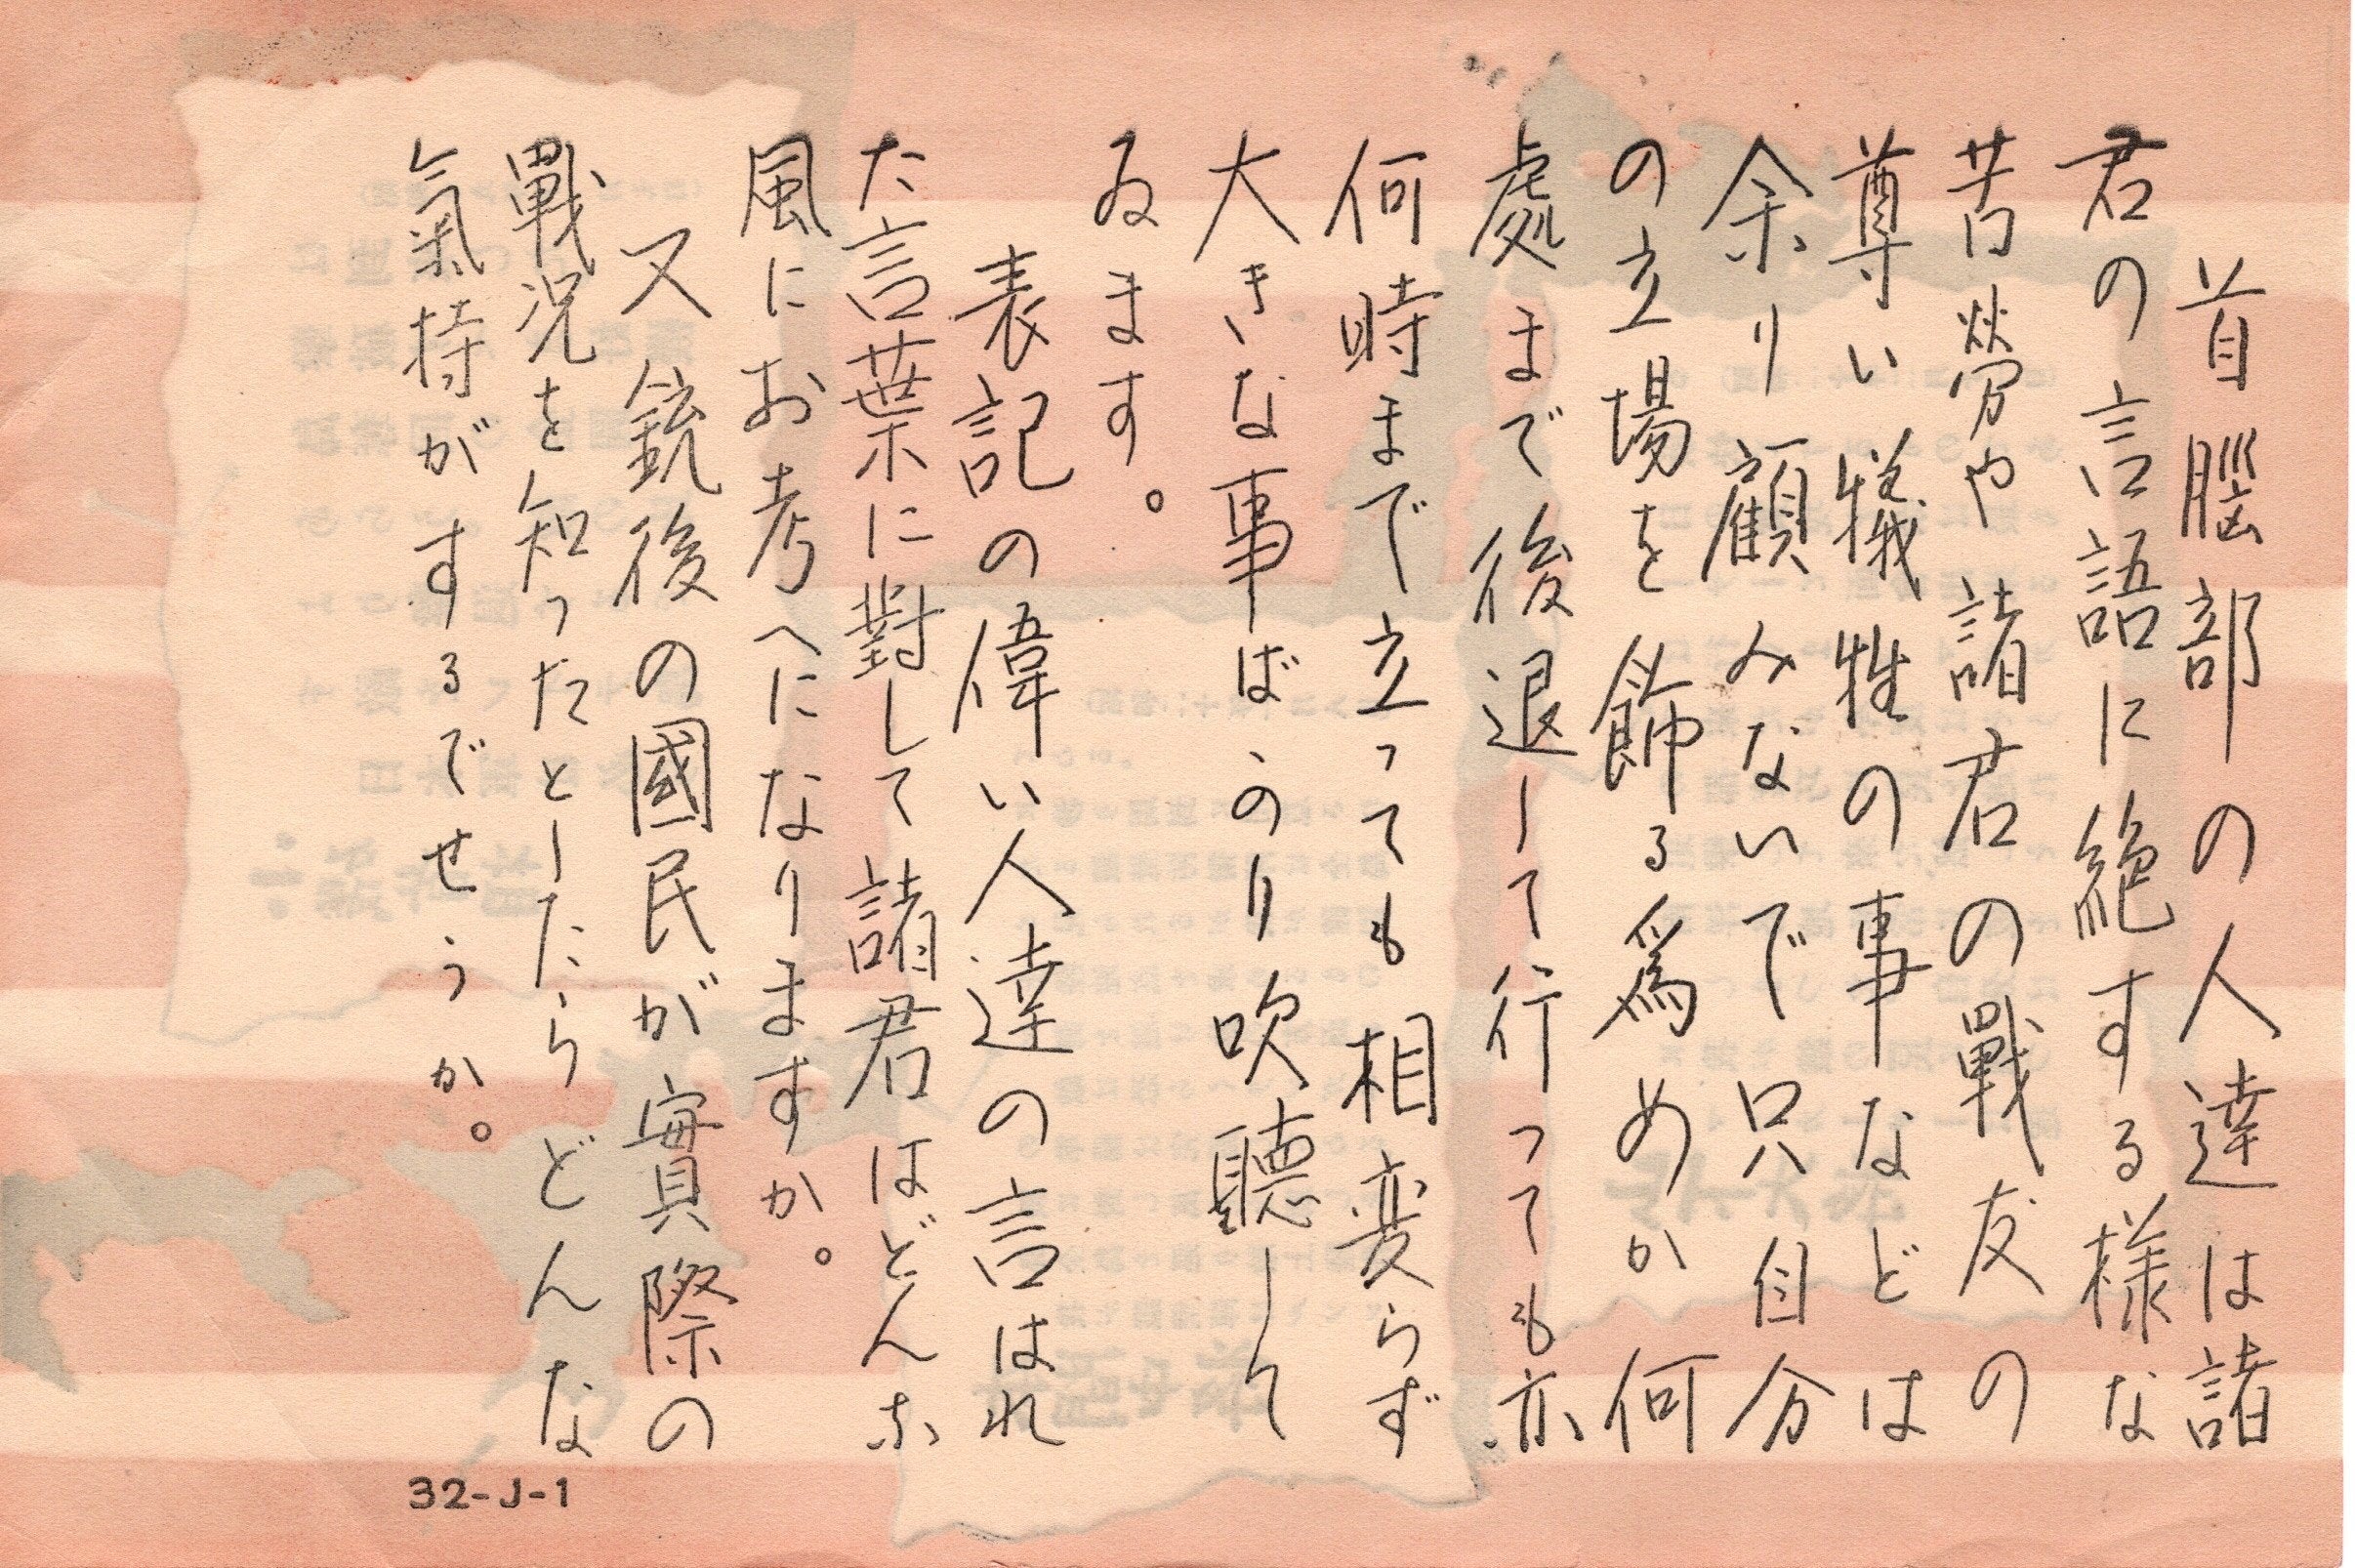 首腦部の人達は諸
君の言語に絶する様な
苦勞や諸君の戰友の
尊い犠牲の事などは
余り顧みないで只自分
の立場を飾る爲めか何
處まで後退して行っても亦
何時まで立っても相変らず
大きな事ばかり吹聽して
ゐます。
表記の偉い人達の言はれ
た言葉に對して諸君はどんな
風にお考へになりますか。
又銃後の國民が實際の
戰況を知ったとしたらどんな
氣持がするでせうか。
32-J-1